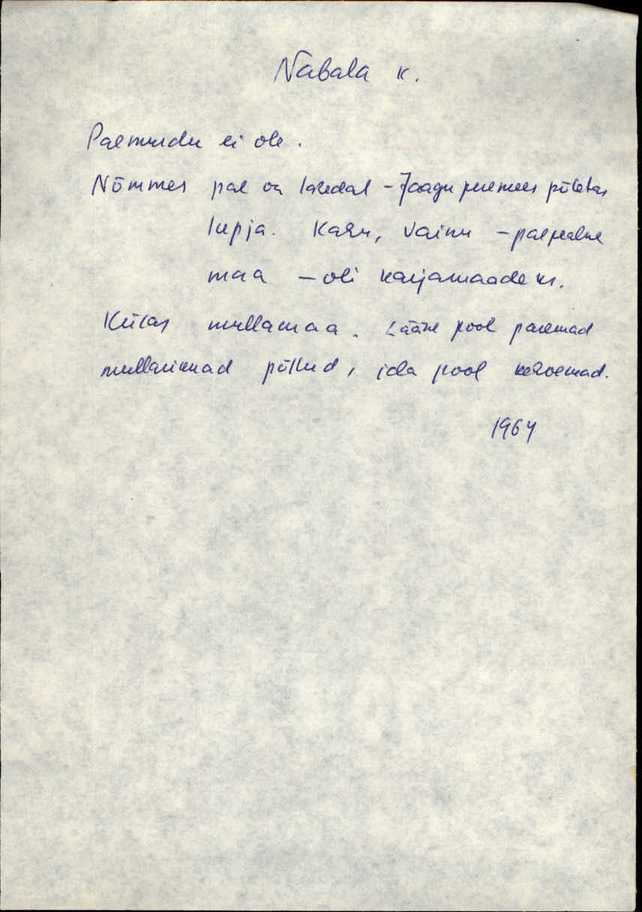 Nabala k.
Paemurdu ei ole.
Nõmmes pae on lahedal – Jaagu peremees põletas
lupja. Karu, Vainu – paepealne
maa – oli karjamaadeks.
Külas mullamaa. Lääne pool paremad
mullarikkad põllud, ida pool kehvemad.
1964